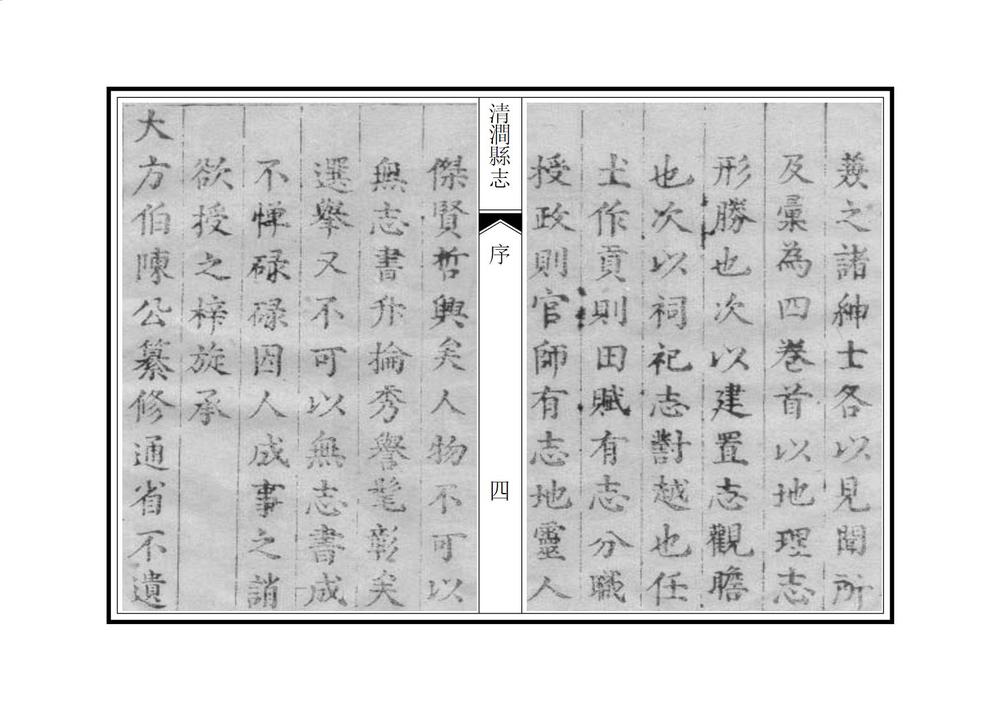 蒭之諸紳士各以見聞所
及彙為四卷首以地理志
形勝也次以建置志觀瞻
也次以祠祀志對越也任
土作貢則田賦有志分職
授政則官師有志地靈人
清澗縣志
序
四
傑賢哲興矣人物不可以
無志書升掄秀譽髦彰矣
選舉又不可以無志書成
不憚碌碌因人成事之誚
欲授之梓旋承
大方伯陳公纂修通省不遺